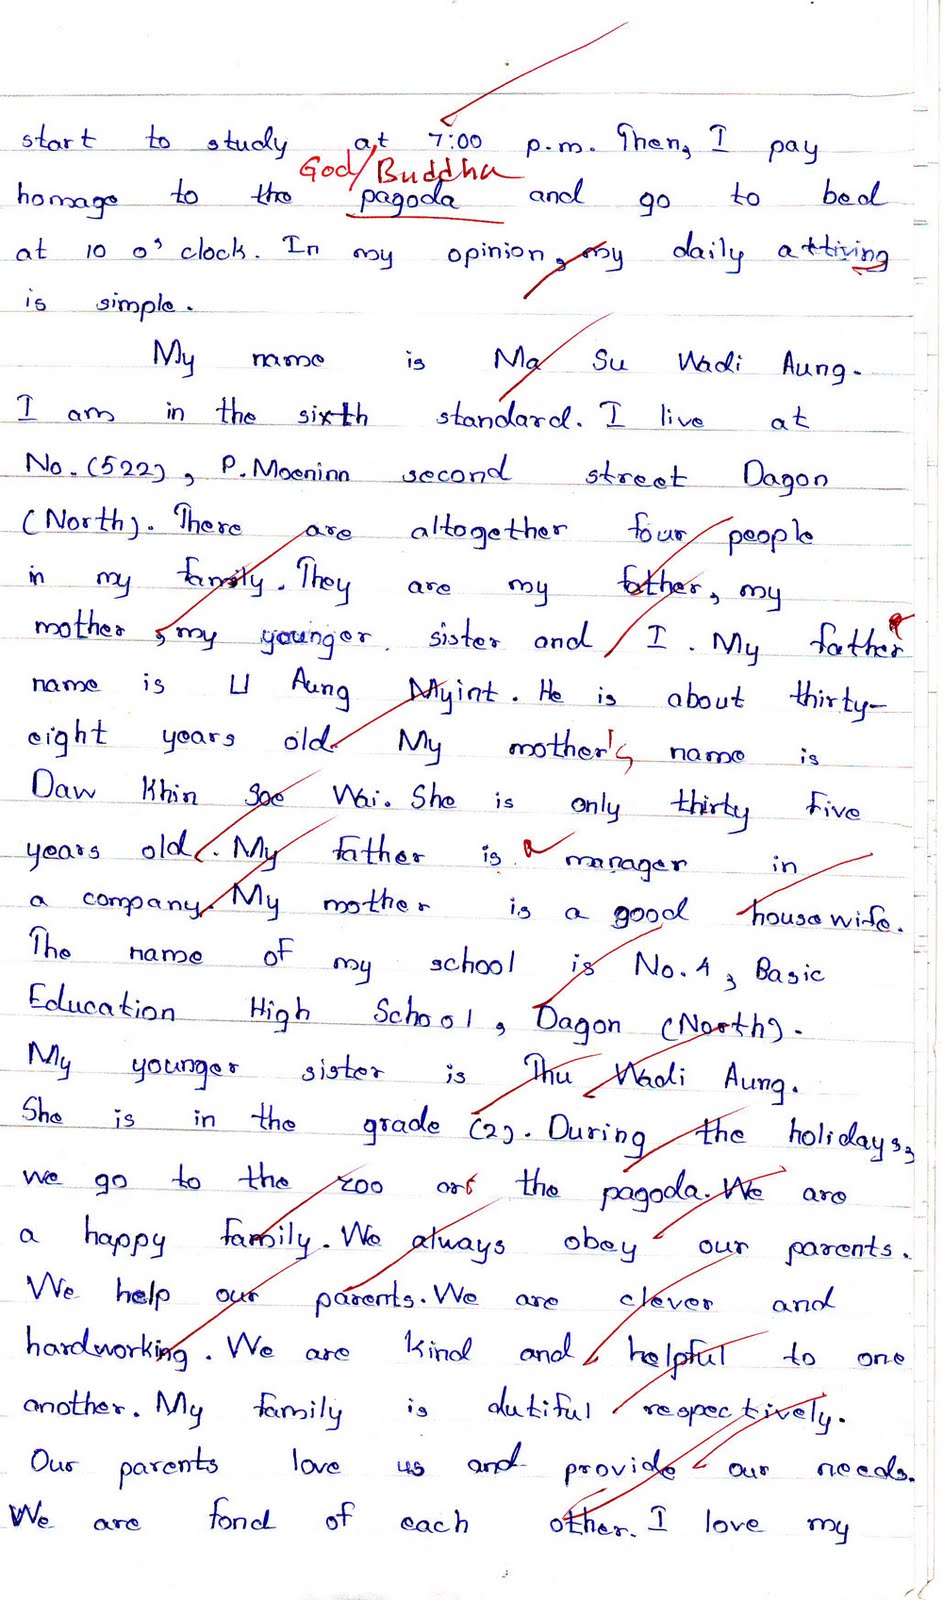 start to study at 7:00 p.m. Then, I pay
God/Buddha
homage to the pagoda and go to bed
at 10 o'clock. In my opinion, my daily attiving
is simple.
My name is Ma Su Wadi Aung.
I am in the sixth standard. I live at
No.(522), P. Moeninn second street Dagon
(North). There are altogether four people
in my family. They are my father, my
mother, my younger sister and I. My father
name is U Aung Myint. He is about thirty-
eight years old. My mother's name is
Daw Khin Soe Wai. She is only thirty five
years old. My father is a manager in
a company. My mother is a good housewife.
The name of my school is No.4, Basic
Education High School, Dagon (North).
My younger sister is Thu Wadi Aung.
She is in the grade (2). During the holidays,
we go to the zoo or the pagoda. We are
a happy family. We always obey our parents.
We help our parents. We are clever and
hardworking. We are kind and helpful to one
another. My family is dutiful respectively.
Our parents love us and provide our needs.
We are fond of each other. I love my